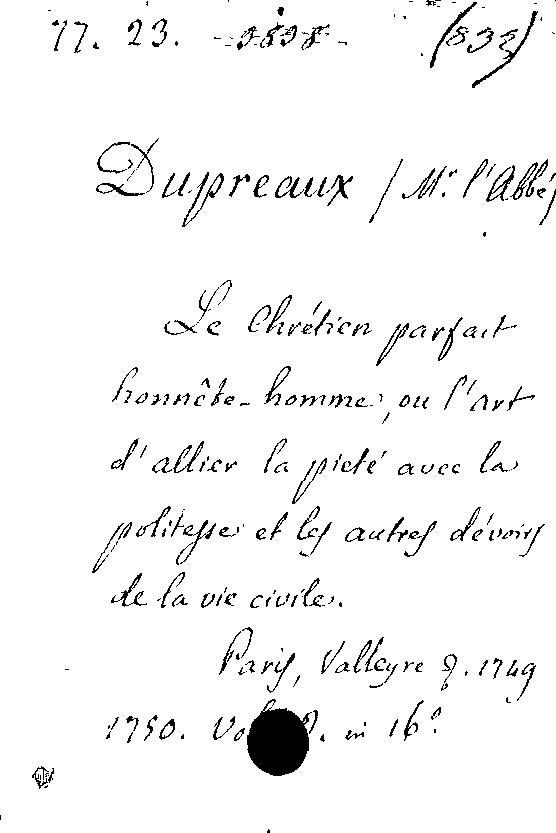 77. 23. (832)
Dupreaux / Mr. l'Abbé/
Le Chrétien parfait
honnête-homme, ou l'art
d'allier la pieté avec la
politesse et les autres dévoirs
de la vie civile.
Paris, Valleyre J. 1749
1750. in 16º